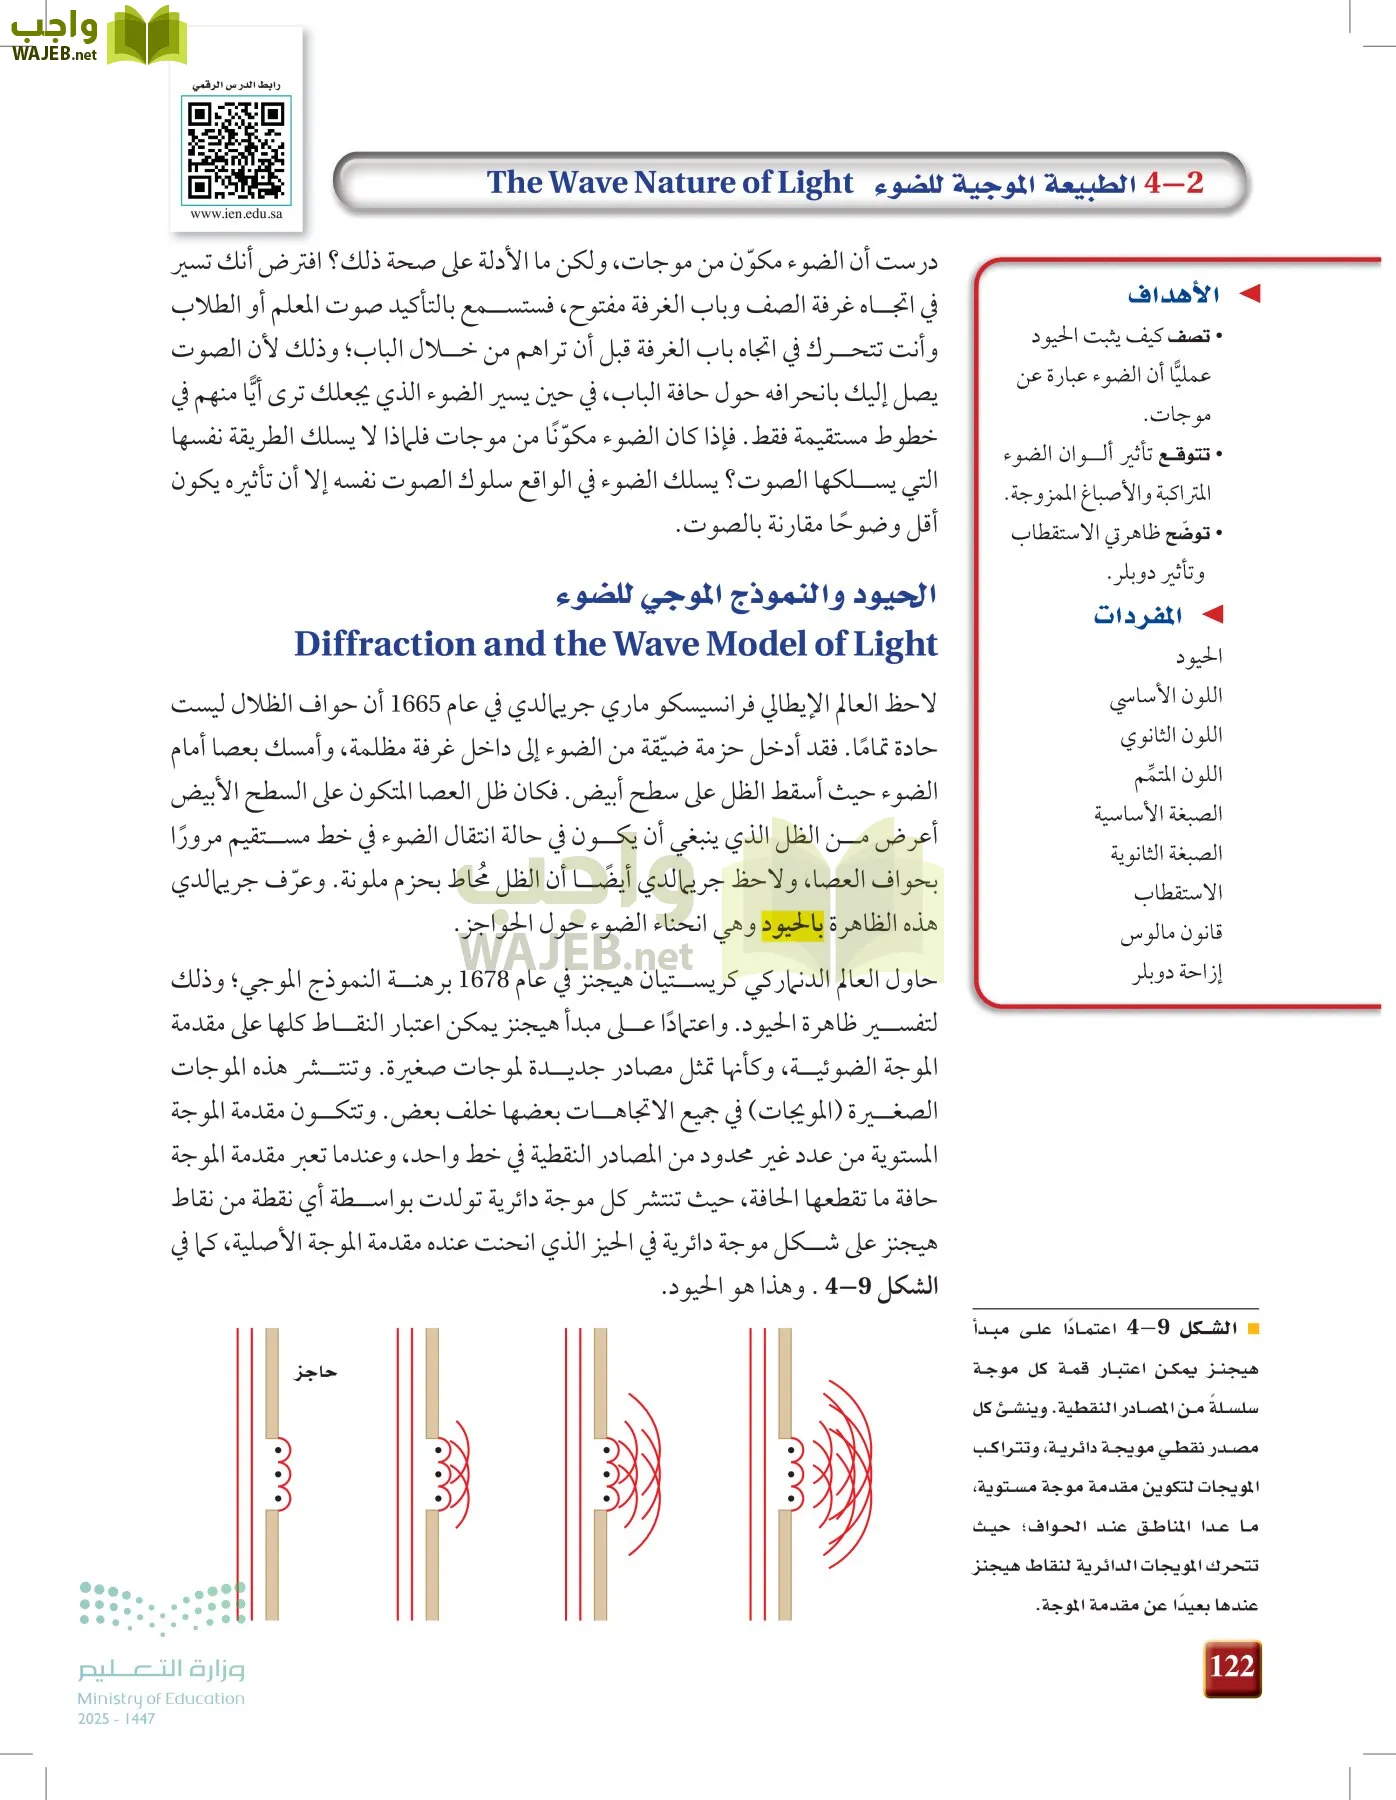 واجب
WAJEB.net
رابط الدرس الرقمي
www.ien.edu.sa
4–2 الطبيعة الموجية للضوء The Wave Nature of Light
الأهداف
• تصف كيف يثبت الحيود
عمليًّا أن الضوء عبارة عن
موجات.
• تتوقع تأثير ألوان الضوء
المتراكبة والأصباغ الممزوجة.
• توضّح ظاهرتي الاستقطاب
وتأثير دوبلر.
المفردات
الحيود
اللون الأساسي
اللون الثانوي
اللون المتمِّم
الصبغة الأساسية
الصبغة الثانوية
الاستقطاب
قانون مالوس
إزاحة دوبلر
درست أن الضوء مكوّن من موجات، ولكن ما الأدلة على صحة ذلك؟ افترض أنك تسير
في اتجاه غرفة الصف وباب الغرفة مفتوح، فستسمع بالتأكيد صوت المعلم أو الطلاب
وأنت تتحرك في اتجاه باب الغرفة قبل أن تراهم من خلال الباب؛ وذلك لأن الصوت
يصل إليك بانحرافه حول حافة الباب، في حين يسير الضوء الذي يجعلك ترى أيًّا منهم في
خطوط مستقيمة فقط. فإذا كان الضوء مكوّنًا من موجات فلماذا لا يسلك الطريقة نفسها
التي يسلكها الصوت؟ يسلك الضوء في الواقع سلوك الصوت نفسه إلا أن تأثيره يكون
أقل وضوحًا مقارنة بالصوت.
الحيود والنموذج الموجي للضوء
Diffraction and the Wave Model of Light
لاحظ العالم الإيطالي فرانسيسكو ماري جريمالدي في عام 1665 أن حواف الظلال ليست
حادة تمامًا. فقد أدخل حزمة ضيّقة من الضوء إلى داخل غرفة مظلمة، وأمسك بعصا أمام
الضوء حيث أسقط الظل على سطح أبيض. فكان ظل العصا المتكون على السطح الأبيض
أعرض من الظل الذي ينبغي أن يكون في حالة انتقال الضوء في خط مستقيم مرورًا
بحواف العصا، ولاحظ جريمالدي أيضًا أن الظل مُحاط بحزم ملونة. وعرّف جريمالدي
هذه الظاهرة بالحيود وهي انحناء الضوء حول الحواجز.
واجب
WAJEB.net
حاول العالم الدنماركي كريستيان هيجنز في عام 1678 برهنة النموذج الموجي؛ وذلك
لتفسير ظاهرة الحيود. واعتمادًا على مبدأ هيجنز يمكن اعتبار النقاط كلها على مقدمة
الموجة الضوئية، وكأنها تمثل مصادر جديدة لموجات صغيرة. وتنتشر هذه الموجات
الصغيرة (المويجات) في جميع الاتجاهات بعضها خلف بعض. وتتكون مقدمة الموجة
المستوية من عدد غير محدود من المصادر النقطية في خط واحد، وعندما تعبر مقدمة الموجة
حافة ما تقطعها الحافة، حيث تنتشر كل موجة دائرية تولدت بواسطة أي نقطة من نقاط
هيجنز على شكل موجة دائرية في الحيز الذي انحنت عنده مقدمة الموجة الأصلية، كما في
الشكل 9–4 . وهذا هو الحيود.
حاجز
الشكل 9–4 اعتمادًا على مبدأ
هيجنز يمكن اعتبار قمة كل موجة
سلسلةً من المصادر النقطية. وينشئ كل
مصدر نقطي مويجة دائرية، وتتراكب
المويجات لتكوين مقدمة موجة مستوية،
ما عدا المناطق عند الحواف؛ حيث
تتحرك المويجات الدائرية لنقاط هيجنز
عندها بعيدًا عن مقدمة الموجة.
122
وزارة التعليم
Ministry of Education
2025 - 1447